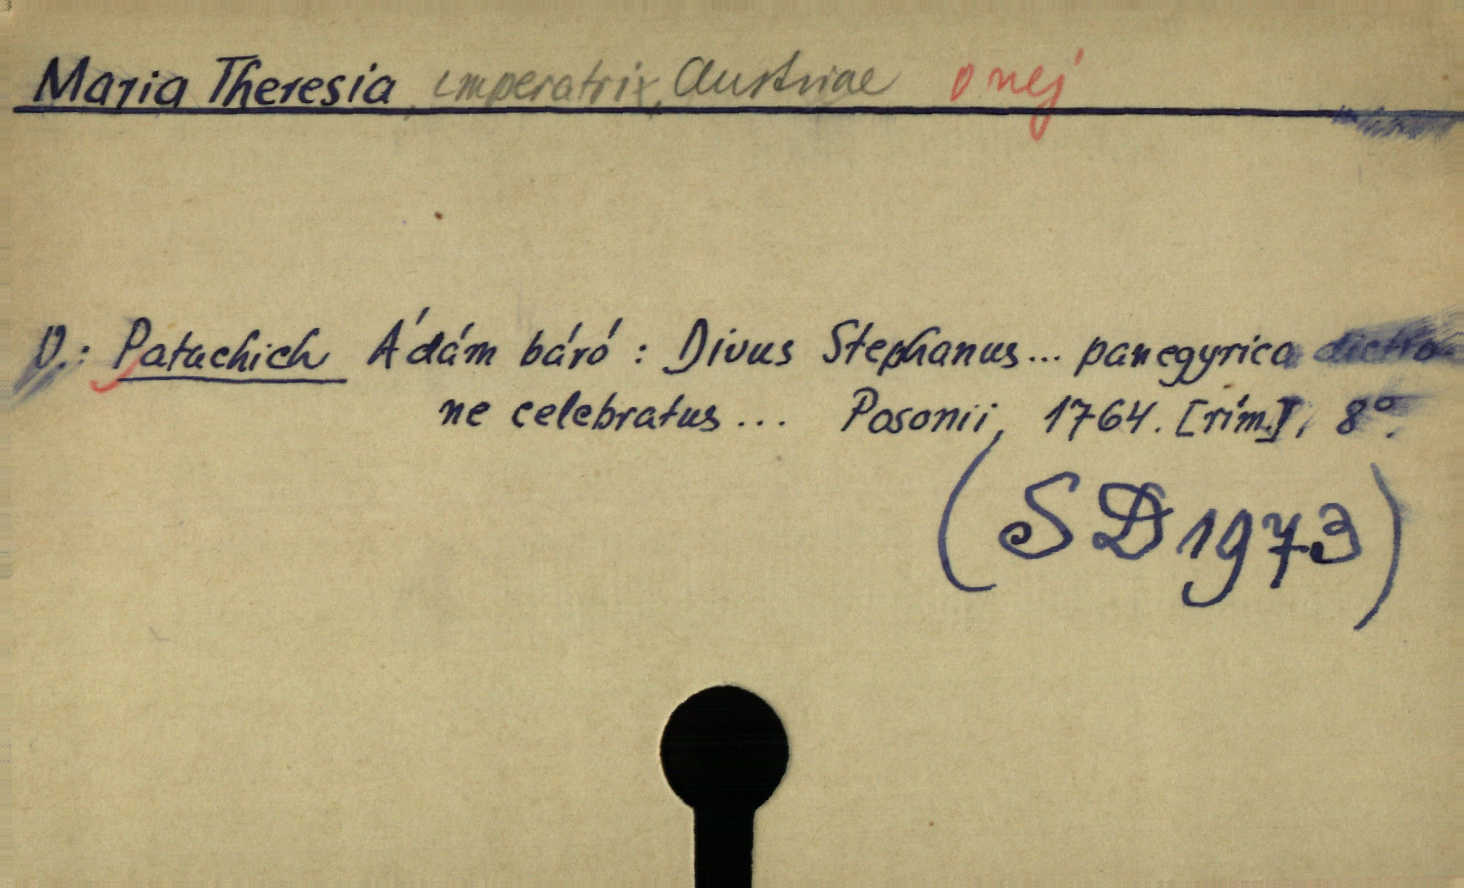 Maria Theresia, imperatrix, Austriae o nej
V.: Patachich Ádám báró: Divus Stephanus... panegyrica dictio-
ne celebratus... Posonii, 1764. [rím.], 8°.
(SD 1973)